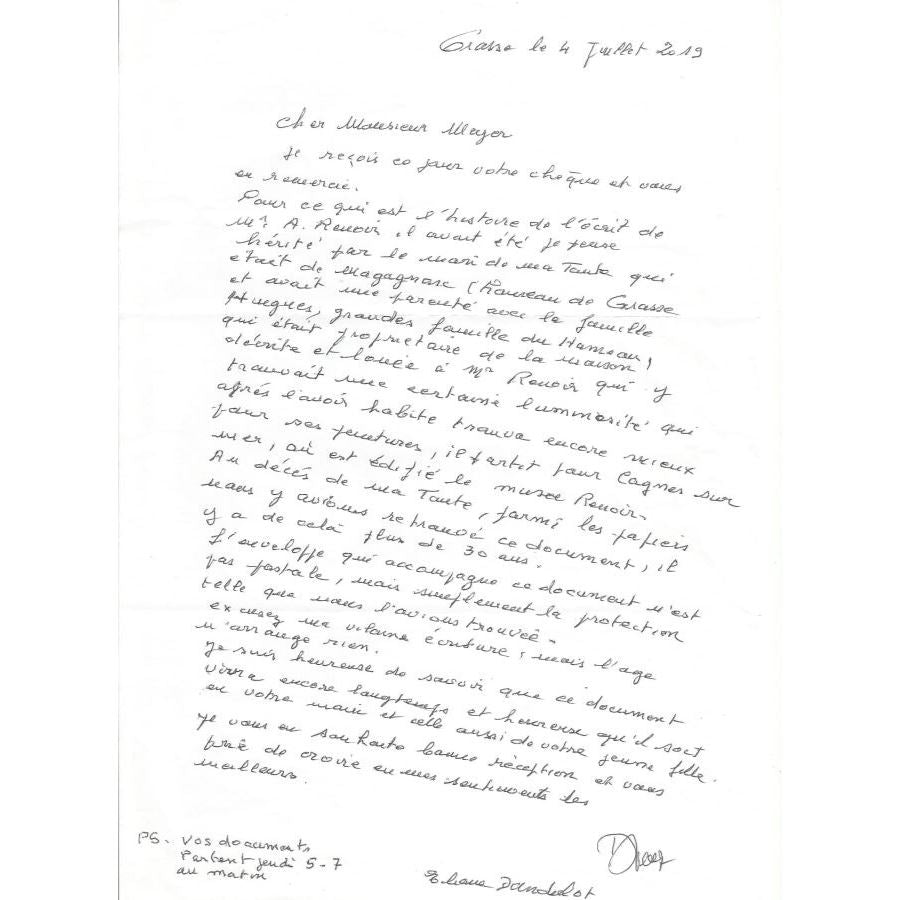 Grasse le 4 Juillet 2019
Cher Monsieur Meyer
Je reçois ce jour votre chèque et vous
en remercie.
Pour ce qui est l'histoire de l'écrit de
Mr A. Renoir, il avait été je pense
hérité par le mari de ma Tante qui
était de Magagnosc (Hameau de Grasse
et avait une parenté avec la famille
Hugues, grandes famille du Hameau,
qui était propriétaire de la maison
décrite et louée à Mr Renoir qui y
trouvait une certaine luminosité qui
après l'avoir habité trouva encore mieux
pour ses peintures, il partit pour Cagnes sur
mer, où est édifié le musée Renoir.
Au décés de ma Tante, parmi les papiers
nous y avions retrouvé ce document, il
y a de celà plus de 30 ans.
L'enveloppe qui accompagne ce document n'est
pas postale, mais simplement la protection
telle que nous l'avions trouveé.
excusez ma vilaine écriture, mais l'age
n'arrange rien.
Je suis heureuse de savoir que ce document
vivra encore longtemps et heureuse qu'il soit
en votre main et celle aussi de votre jeune fille.
Je vous en souhaite bonne réception et vous
prie de croire en mes sentiments les
meilleurs.
PS. Vos documents
Partent jeudi 5-7
au matin
Eliane Dandelot